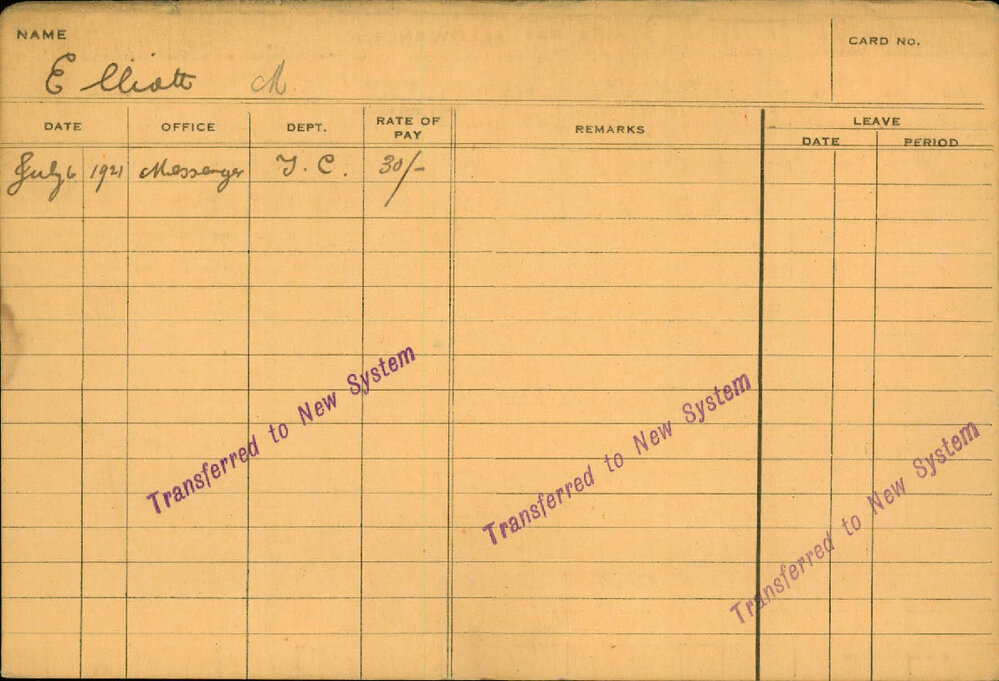 NAME
CARD No.
Elliott M
DATE OFFICE DEPT. RATE OF PAY REMARKS LEAVE
DATE PERIOD
July 6 1921 Messenger T. C. 30/-
Transferred to New System
Transferred to New System
Transferred to New System